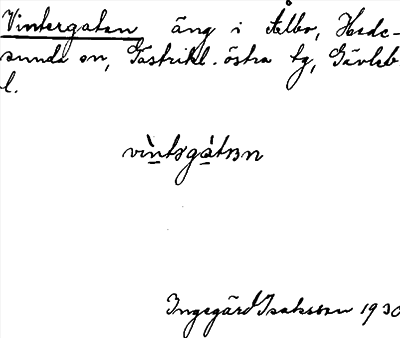 Vintergatan äng i Ålbo, Hede-
sunda sn, Gästrikl. östra tg, Gävleb
l.
Ingegärd Isaksson 1930